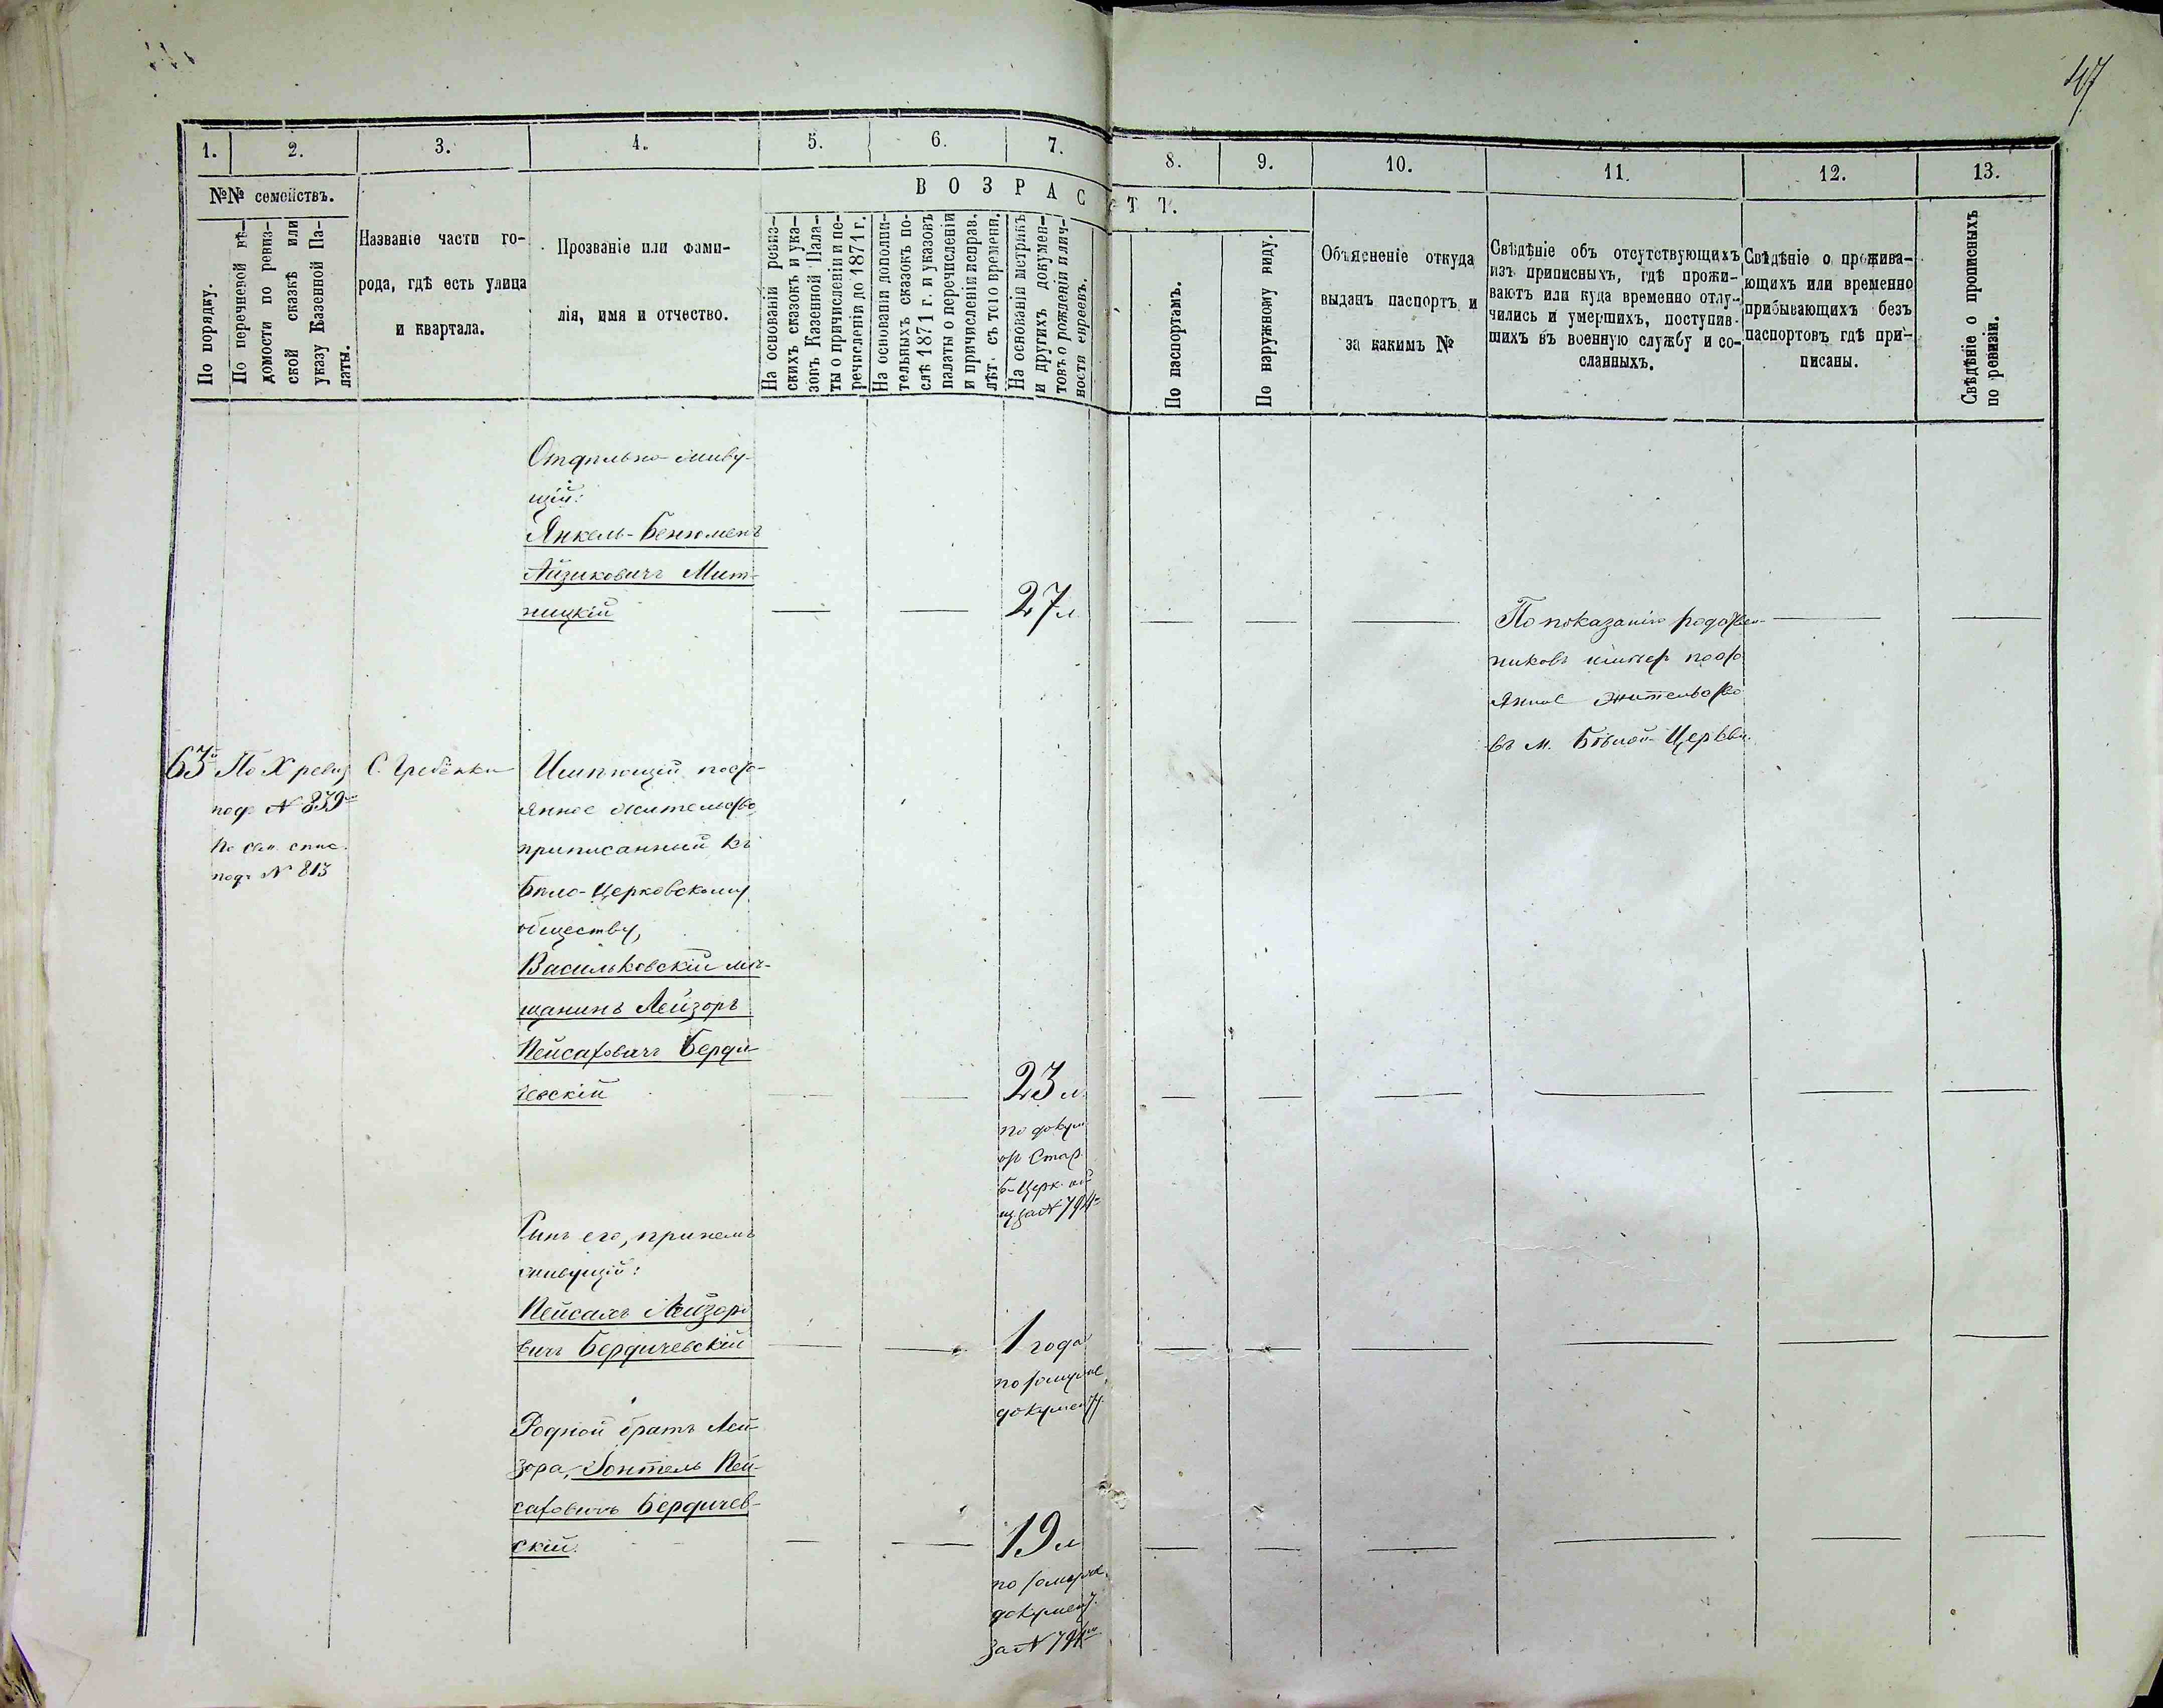 47
1. 2. 3. 4. 5. 6. 7. 8. 9. 10. 11. 12. 13.
№№ семействъ.
ВОЗРАСТТ.
По порядку.
По перечневой вѣ-
домости по ревиз-
ской сказкѣ или
указу Казенной Па-
латы.
Названіе части го-
рода, гдѣ есть улица
и квартала.
Прозваніе или фами-
лія, имя и отчество.
На основаніи ревиз-
скихъ сказокъ и ука-
зовъ Казенной Пала-
ты о причисленіи и пе-
речисленіи до 1871 г.
На основаніи дополни-
тельныхъ сказокъ по-
слѣ 1871 г. и указовъ
палаты о перечисленіи
и причисленіи исправ.
лѣт. съ того времени.
На основаніи метрикъ
и другихъ докумен-
товъ о рожденіи и лич-
ности евреевъ.
По паспортамъ.
По наружному виду.
Объясненіе откуда
выданъ паспортъ и
за какимъ №
Свѣдѣніе объ отсутствующихъ
изъ приписныхъ, гдѣ прожи-
ваютъ или куда временно отлу-
чились и умершихъ, поступив-
шихъ въ военную службу и со-
сланныхъ.
Свѣдѣніе о прожива-
ющихъ или временно
прибывающихъ безъ
паспортовъ гдѣ при-
писаны.
Свѣдѣніе о прописныхъ
по ревизіи.
Отдѣльно живу-
щій:
Янкель-Бенюменъ
Айзиковичъ Мит-
ницкій
27 л.
По показанію родствен-
никовъ имѣет посто
янное жительство
въ м. Бѣлой-Церкви.
63й
По X ревиз
под. № 839
По сем. спис.
под. № 813
С. Гребенки
Имѣющій посто-
янное жительство,
приписанный къ
Бѣло-Церковскому
обществу,
Васильковскій мѣ-
щанинъ Лейзоръ
Пейсаховичъ Берди
чевскій
23 л.
по докум
от Стар.
Б-Церк.
за № 794
Сынъ его, при немъ
живущій:
Пейсахъ Лейзоро
вичъ Бердичевскій
1 года
по тому же
документу.
Родной братъ Лей-
зора, Іонтель Пей-
саховичъ Бердичев-
скій.
19 л
по тому же
документ.
за № 794